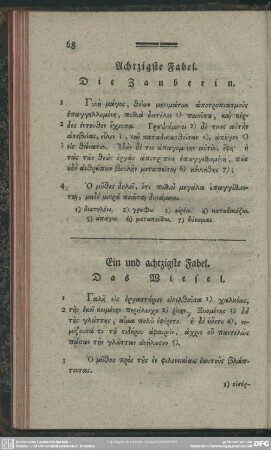 68
Achtzigste Fabel.
Die Zauberin.
1 Γυνὴ μάγος, θείων μηνιμάτων ἀποτροπιασμοὺς
ἐπαγγελλομένη, πολλὰ διετέλει 1) ποιοῦσα, καὶ κέρ-
2 δος ἐντεῦθεν ἔχουσα. Γραψάμενοι 2) δέ τινες αὐτὴν
ἀσεβείας, εἷλον 3), καὶ καταδικασθεῖσαν 4), ἀπῆγον 5)
3 εἰς θάνατον. Ἰδὼν δέ τις ἀπαγομένην αὐτὴν, ἔφη· ἡ
τὰς τῶν θεῶν ὀργὰς ἀποτρέπειν ἐπαγγελλομένη, πῶς
οὐδὲ ἀνθρώπων βουλὴν μεταπεῖσαι 6) ἠδυνήθης 7);
4 Ὁ μῦθος δηλοῖ, ὅτι πολλοὶ μεγάλα ἐπαγγέλλον-
ται, μηδὲ μικρὰ ποιῆσαι δυνάμενοι.
1) διατελέω. 2) γράφω 3) αἱρέω. 4) καταδικάζω.
5) ἀπάγω. 6) μεταπείθω. 7) δύναμαι.
Ein und achtzigste Fabel.
Das Wiesel.
1 Γαλῆ εἰς ἐργαστήριον εἰσελθοῦσα 1) χαλκέως,
2 τὴν ἐκεῖ κειμένην περιέλειχε 2) ῥίνην. Ξυομένης 3) δὲ
τῆς γλώττης, αἷμα πολὺ ἐφέρετο. ἡ δὲ ἥδετο 4), νο-
μίζουσά τι τοῦ σιδήρου ἀφαιρεῖν, ἄχρις οὗ παντελῶς
πᾶσαν τὴν γλῶτταν ἀνήλωσεν 5).
3 Ὁ μῦθος πρὸς τοὺς ἐν φιλονεικίαις ἑαυτοὺς βλάπ-
τοντας.
1) εἰσέρ-